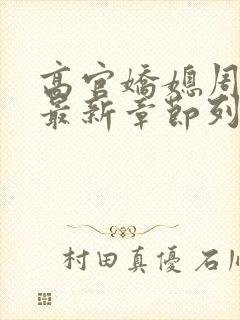 高官嬌媳周
最新章節列
村田真優 石川